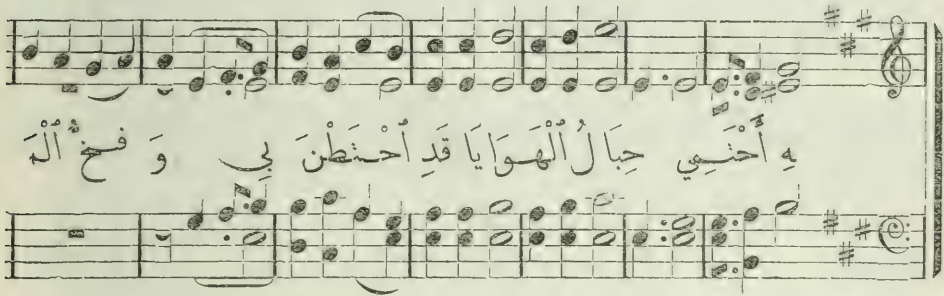 هِ أَحْتَمِي حِبَالُ ٱلْهَوَايَا قَدِ ٱحْتَطْنَ بِي وَ فَخُّ ٱلْمَ